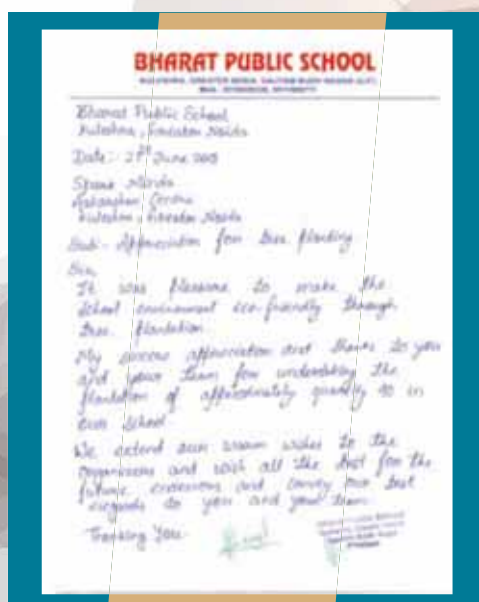 BHARAT PUBLIC SCHOOL
KULESHRA, GREATER NOIDA, GAUTAM BUDH NAGAR (U.P.)
Bharat Public School
Kuleshra, Greater Noida
Date:- 27th June
Kuleshra, Greater Noida
Sub:- Appreciation for tree planting
Sir,
It was pleasure to make the
school environment eco-friendly through
tree plantation.
My sincere appreciation and thanks to you
and your team for undertaking the
plantation of approximately quantity 50 in
our school.
We extend our warm wishes to the
organisers and wish all the best for the
future and convey our best
regards to you and your team.
Thanking You